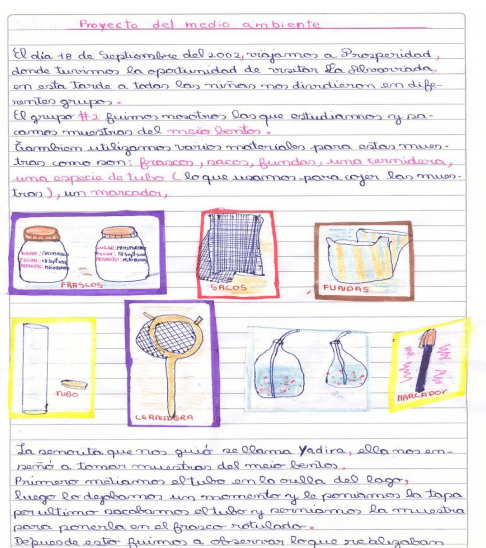 Proyecto del medio ambiente
El dia 18 de Septiembre del 2.002, viajamos a Prosperidad,
donde tuvimos la oportunidad de visitar La Alvarrada,
en esta tarde a todas las niñas nos dividieron en dife-
rentes grupos.
El grupo #2 fuimos nosotros las que estudiamos y sa-
camos muestras del meio bentos.
Tambien utilizamos varios materiales para estas mues-
tras como son: frascos, sacos, fundas, una cernidera,
una especie de tubo (lo que usamos para cojer las mues-
tras), un marcador,
LUGAR: PROSPERIDAD
FECHA: 18 Sept
LUGAR: PROSPERIDAD
FECHA: 18 Sept
FRASCOS
SACOS
FUNDAS
TUBO
CERNIDERA
MARCADOR
La señorita que nos guió se llama Yadira, ella nos en-
señó a tomar muestras del meio bentos.
Primero metiamos el tubo en la orilla del lago,
luego lo dejabamos un momento y le poniamos la tapa
por ultimo sacabamos el tubo y serniamos la muestra
para ponerla en el frasco rotulado.
Depues de esto fuimos a observar lo que realizaban